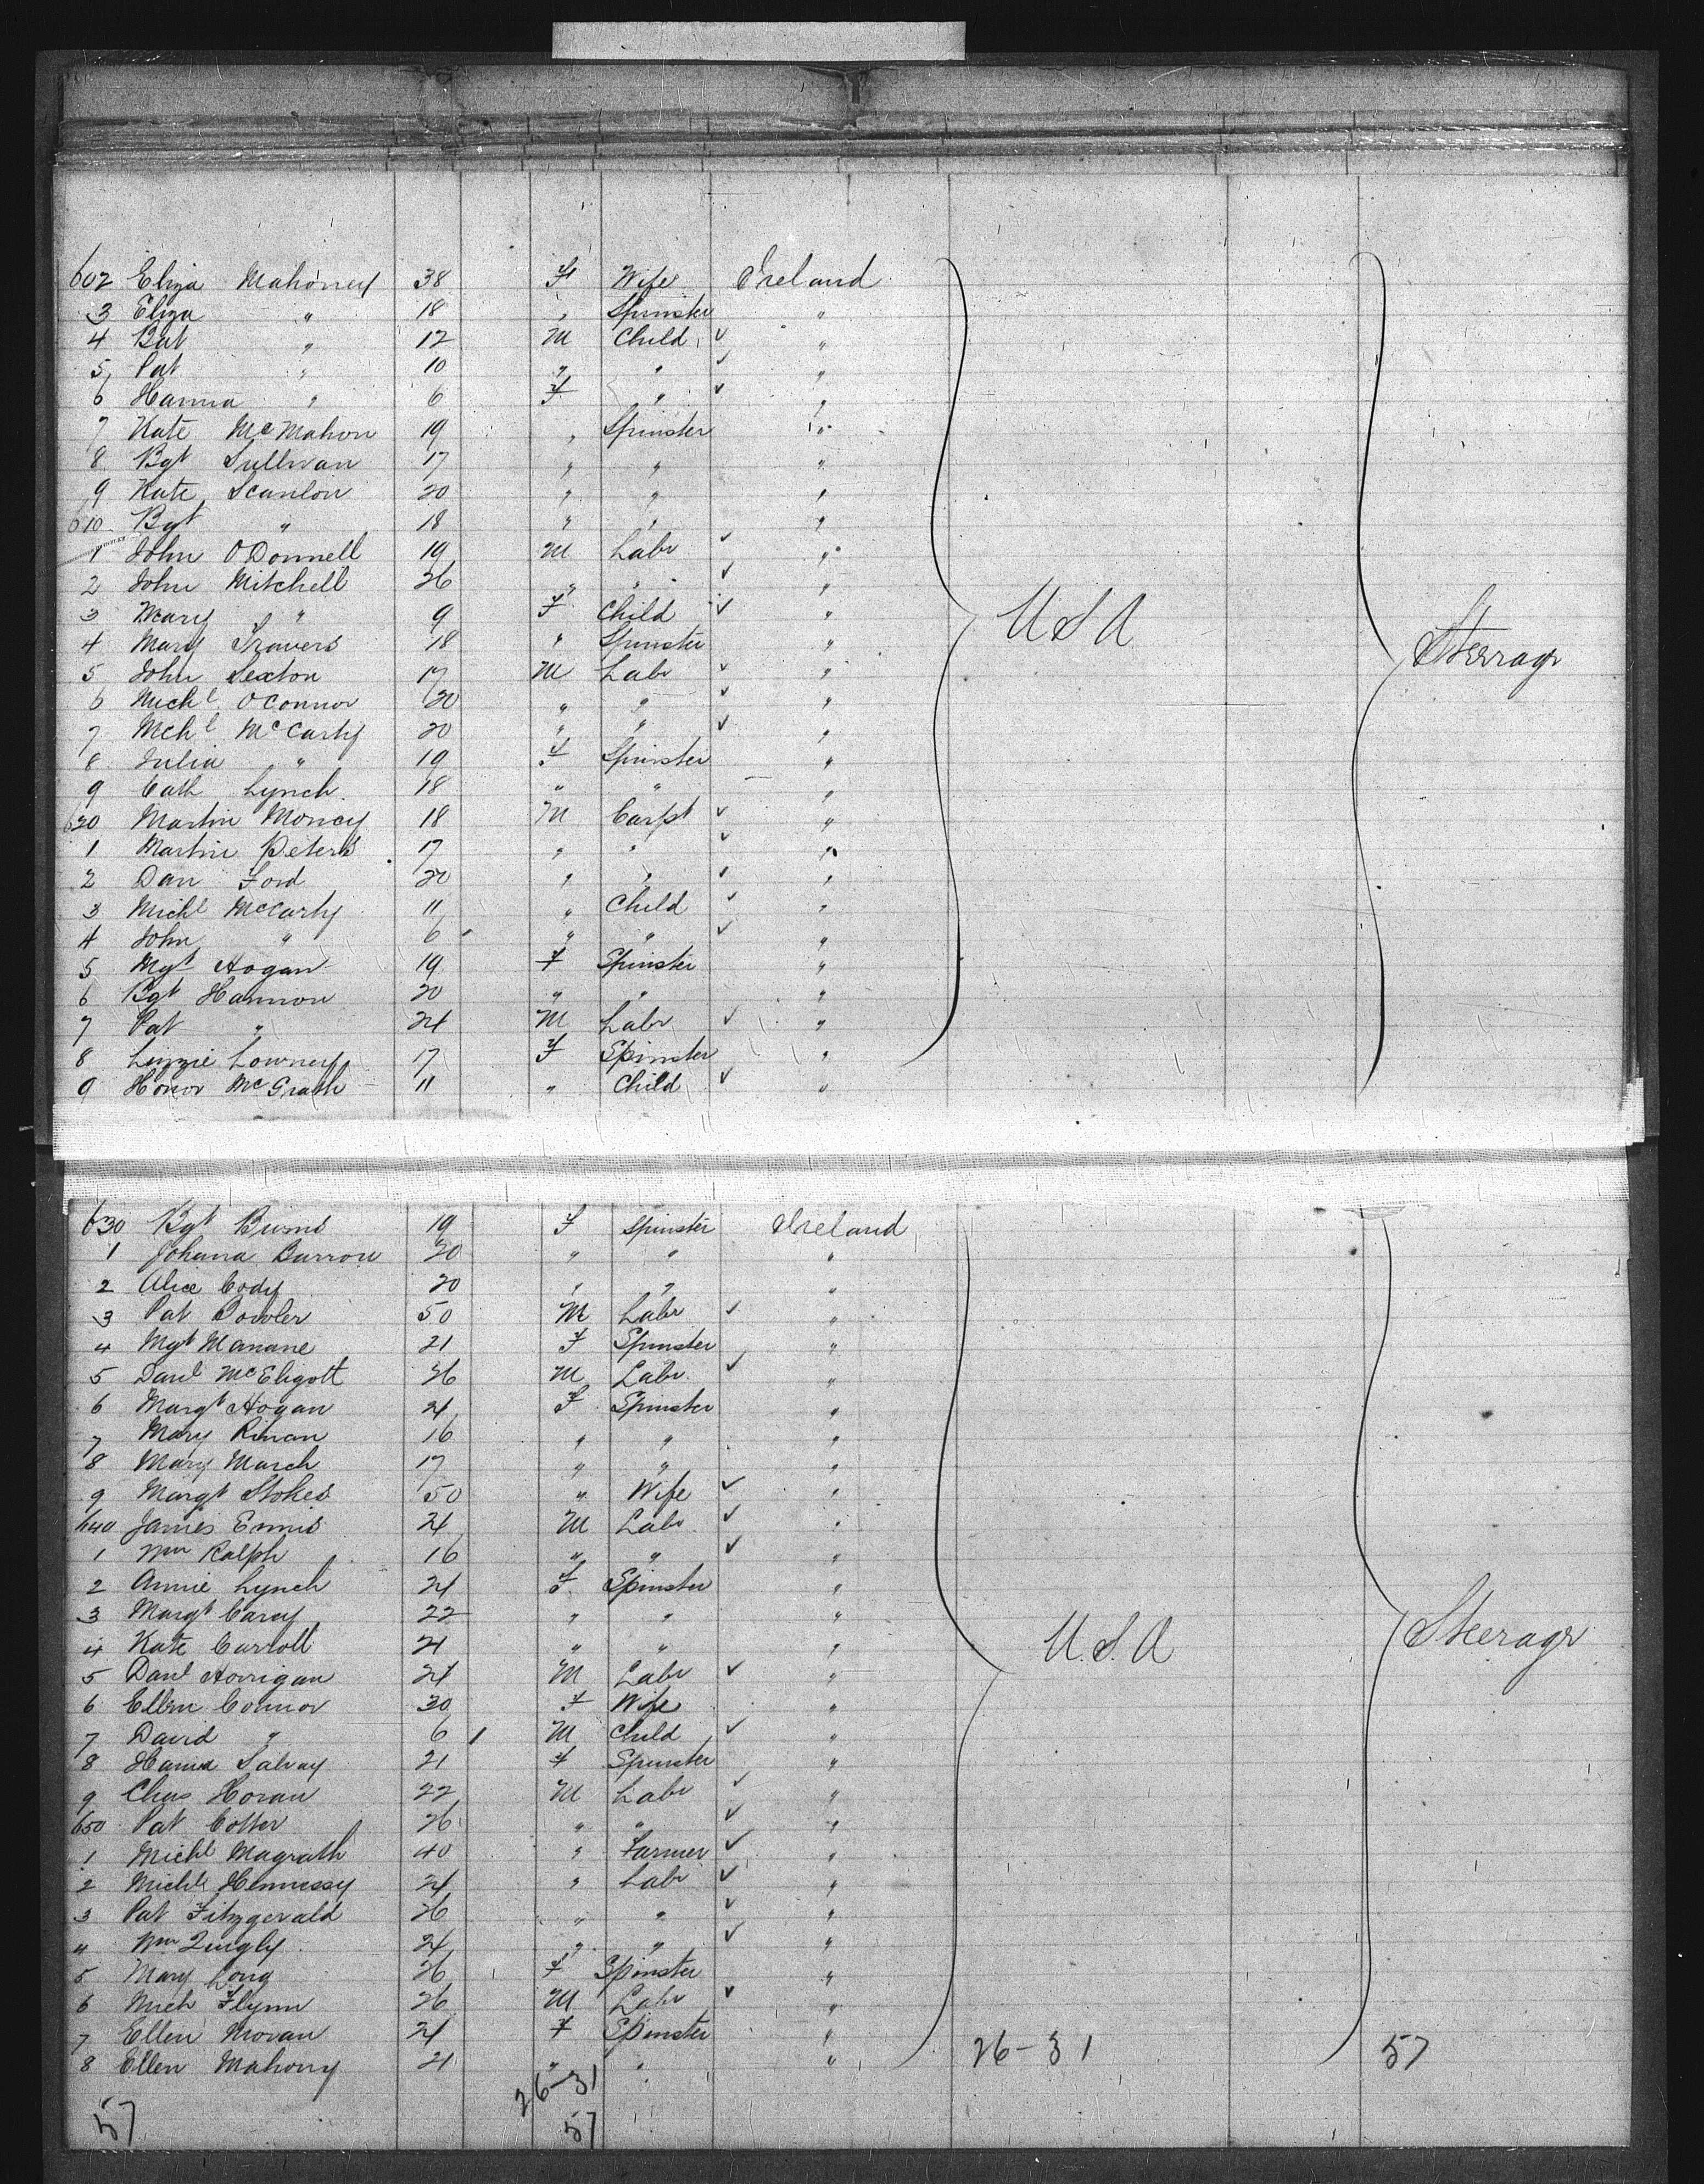 602 Eliza Mahoney 38 F Wife Ireland
3 Eliza " 18 " Spinster "
4 Bat " 12 M Child ✓ "
5 Pat " 10 " " ✓ "
6 Hanna " 6 F " ✓ "
7 Kate McMahon 19 " Spinster "
8 Bgt Sullivan 17 " " "
9 Kate Scanlon 20 " " "
610 Bgt " 18 " " "
1 John O'Donnell 19 M Labr ✓ "
2 John Mitchell 26 " " ✓ "
3 Mary " 9 F Child ✓ "
4 Mary Travers 18 " Spinster "
5 John Sexton 17 M Labr ✓ "
6 Michl OConnor 20 " " ✓ "
7 Mchl McCarty 20 " " ✓ "
8 Julia " 19 F Spinster "
9 Cath Lynch 18 " " "
620 Martin Money 18 M Carpt ✓ "
1 Martin Peters 17 " " ✓ "
2 Dan Ford 20 " " ✓ "
3 Michl McCarty 11 " Child ✓ "
4 John " 6 " " ✓ "
5 Mgt Hogan 19 F Spinster "
6 Bgt Hannon 20 " " "
7 Pat " 24 M Labr ✓ "
8 Lizzie Lowney 17 F Spinster "
9 Honor McGrath 11 " Child ✓ "
USA Steerage
630 Bgt 19 F Spinster Ireland
1 Johana Barron 20 " " "
2 Alice Cody 20 " " "
3 Pat Bowler 50 M Labr ✓ "
4 Mgt Manane 21 F Spinster "
5 Danl McEligott 26 M Labr ✓ "
6 Margt Hogan 21 F Spinster "
7 Mary 16 " " "
8 Mary March 17 " " "
9 Margt Stokes 50 " Wife ✓ "
640 James Ennis 21 M Labr ✓ "
1 Wm Ralph 16 " " ✓ "
2 Annie Lynch 21 F Spinster "
3 Margt Carey 22 " " "
4 Kate Carroll 21 " " "
5 Danl Horrigan 24 M Labr ✓ "
6 Ellen Connor 30 F Wife "
7 David " 6 M Child ✓ "
8 Hanna 21 F Spinster "
9 Chas Horan 22 M Labr ✓ "
650 Pat Cotter 26 " " ✓ "
1 Michl Magrath 40 " Farmer ✓ "
2 Michl Hennessy 21 " Labr ✓ "
3 Pat Fitzgerald 26 " " ✓ "
4 Wm 24 " " ✓ "
5 Mary Long 26 F Spinster "
6 Mich Flynn 26 M Labr ✓ "
7 Ellen Moran 21 F Spinster "
8 Ellen Mahony 21 " " "
U.S.A Steerage
26-31 57
26-31
57 57